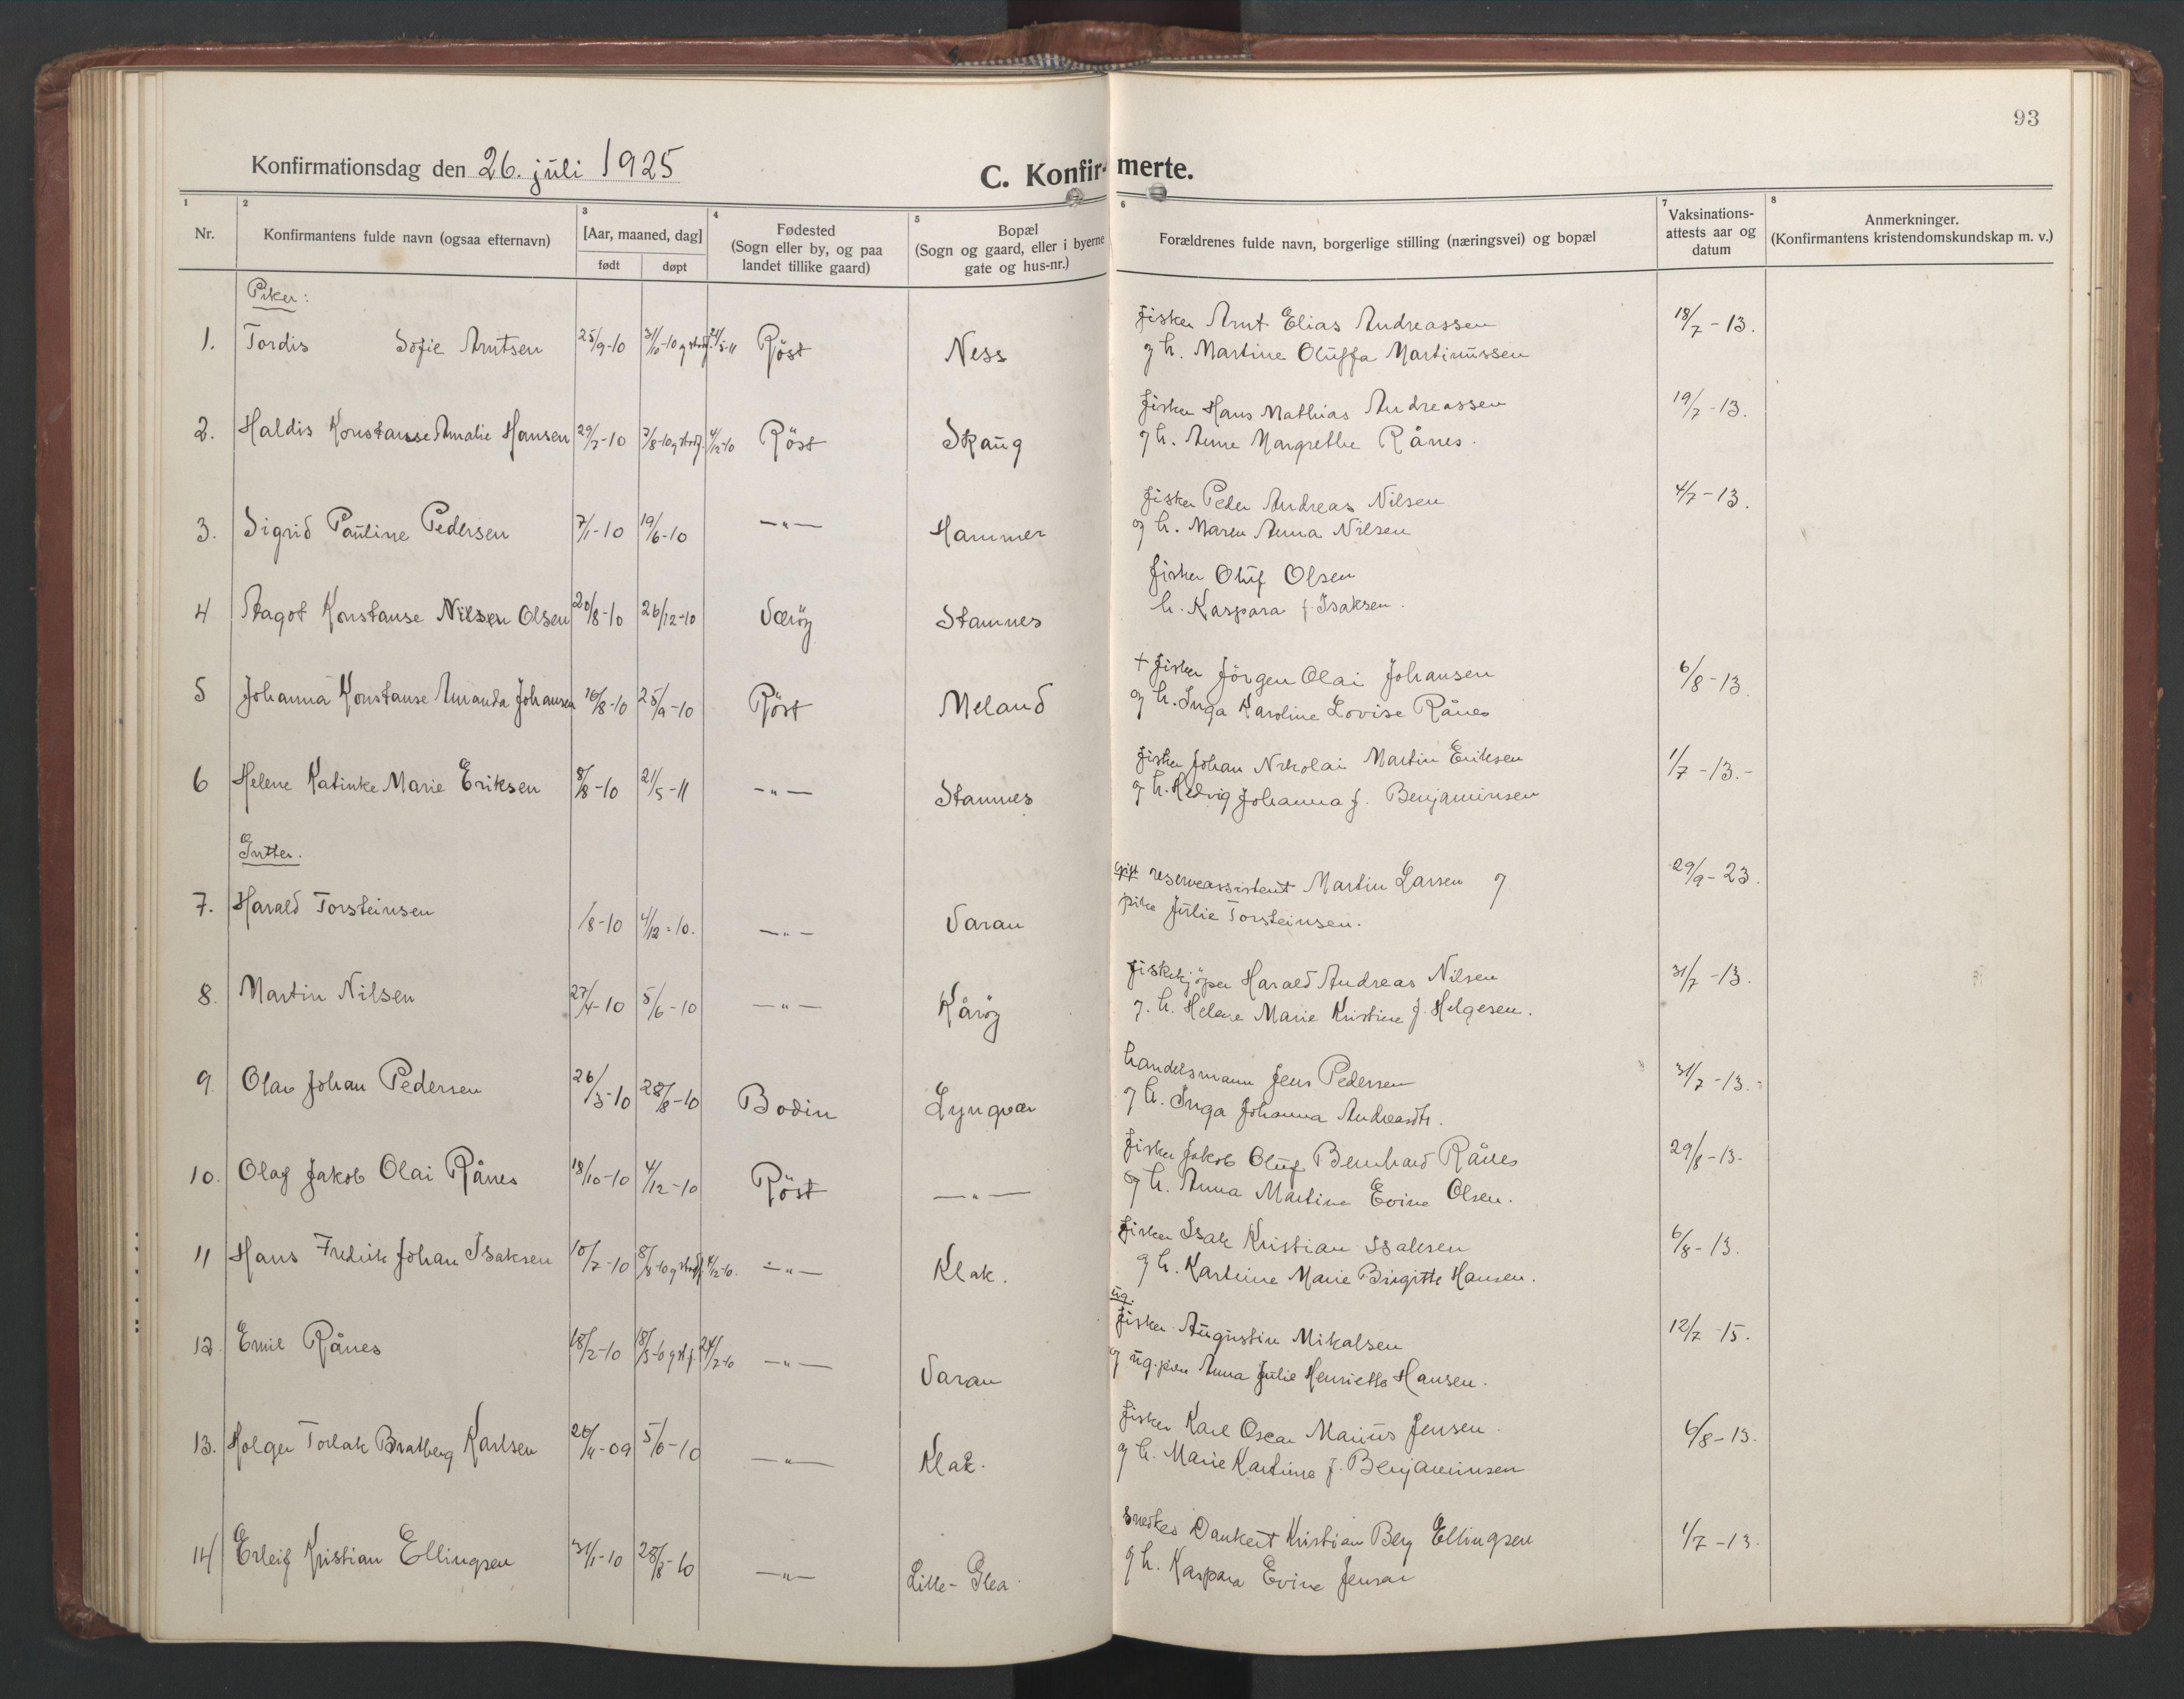 93
Konfirmationsdag den 26. juli 1925
C. Konfir-merte.
1 2 3 4 5 6 7 8
Nr.
Konfirmantens fulde navn (ogsaa efternavn)
[Aar, maaned, dag]
født døpt
Fødested
(Sogn eller by, og paa
landet tillike gaard)
Bopæl
(Sogn og gaard, eller i byerne
gate og hus-nr.)
Forældrenes fulde navn, borgerlige stilling (næringsvei) og bopæl
Vaksinations-
attests aar og
datum
Anmerkninger.
(Konfirmantens kristendomskundskap m. v.)
Piker:
1. Tordis Sofie Arntsen 25/9-10 31/10-10 g stadf. 21/5-11 Röst Ness
fisker Arnt Elias Andreassen 18/7-13.
g h. Martine Oluffa Martinussen
2. Haldis Konstansse Amalie Hansen 29/7-10 7/8-10 g stadf. 4/12-10 Röst Skaug
fisker Hans Mathias Andreassen 19/7-13.
g h. Anne Margrethe Rånes.
3. Sigrid Pauline Pedersen 7/1-10 19/6-10 -"- Hammer
fisker Peder Andreas Nilsen 4/7-13.
g h. Maren Anna Nilsen
4 Aagot Konstanse Nilsen Olsen 20/8-10 26/12-10 Værøy Stamnes
fisker Oluf Olsen
h. Kaspara f. Isaksen.
5 Johanna Konstanse Amanda Johansen 16/8-10 25/9-10 Röst Meland
+ fisker Jörgen Olai Johansen 6/8-13.
g h. Inga Karoline Lovise Rånes
6 Helene Katinke Marie Eriksen 8/8-10 21/5-11 -"- Stamnes
fisker Johan Nikolai Martin Eriksen 1/7-13.-
g h. Hedvig Johanna f. Benjaminsen
Gutter.
7. Harald Torsteinsen /8-10 4/12-10. -"- Varan
gift reserveassistent Martin Larsen g 29/9-23.
pike Julie Torsteinsen.
8. Martin Nilsen 27/4-10 5/6-10 -"- Kårøy
fiskekjöper Harald Andreas Nilsen 31/7-13.
g. h. Helene Marie Kristine f. Helgesen.
9. Olav Johan Pedersen 26/3-10 28/8-10 Bodin Lyngvær
handelsmann Jens Pedersen 31/7-13.-
g h. Inga Johanna Andreasdtr.
10. Olaf Jakob Olai Rånes 18/10-10 4/12-10 Röst -"-
fisker Jakob Oluf Bernhard Rånes 29/8-13.
g h. Anna Martine Evine Olsen.
11 Hans Fredrik Johan Isaksen 10/7-10 8/8-10 g stadf. 4/12-10. -"- Klak.
fisker Isak Kristian Isaksen 6/8-13.
g h. Karstine Marie Birgitte Hansen.
12. Emil Rånes 18/2-10 18/3-10 g st f. 24/7-10 -"- Varan
ug.
fisker Augustin Mikalsen 12/7-15.
g ug. pike Anna Julie Henriette Hansen.
13. Holger Torlak Bratberg Karlsen 26/11-09 5/6-10 -"- Klak.
fisker Karl Oscar Marius Jensen. 6/8-13.
g h. Marie Kartine f. Benjaminsen
14 Erleif Kristian Ellingsen 31/1-10 28/8-10 -"- Lille-Glea
snedker Dankert Kristian Berg Ellingsen 1/7-13.
g h. Kaspara Evine Jensen